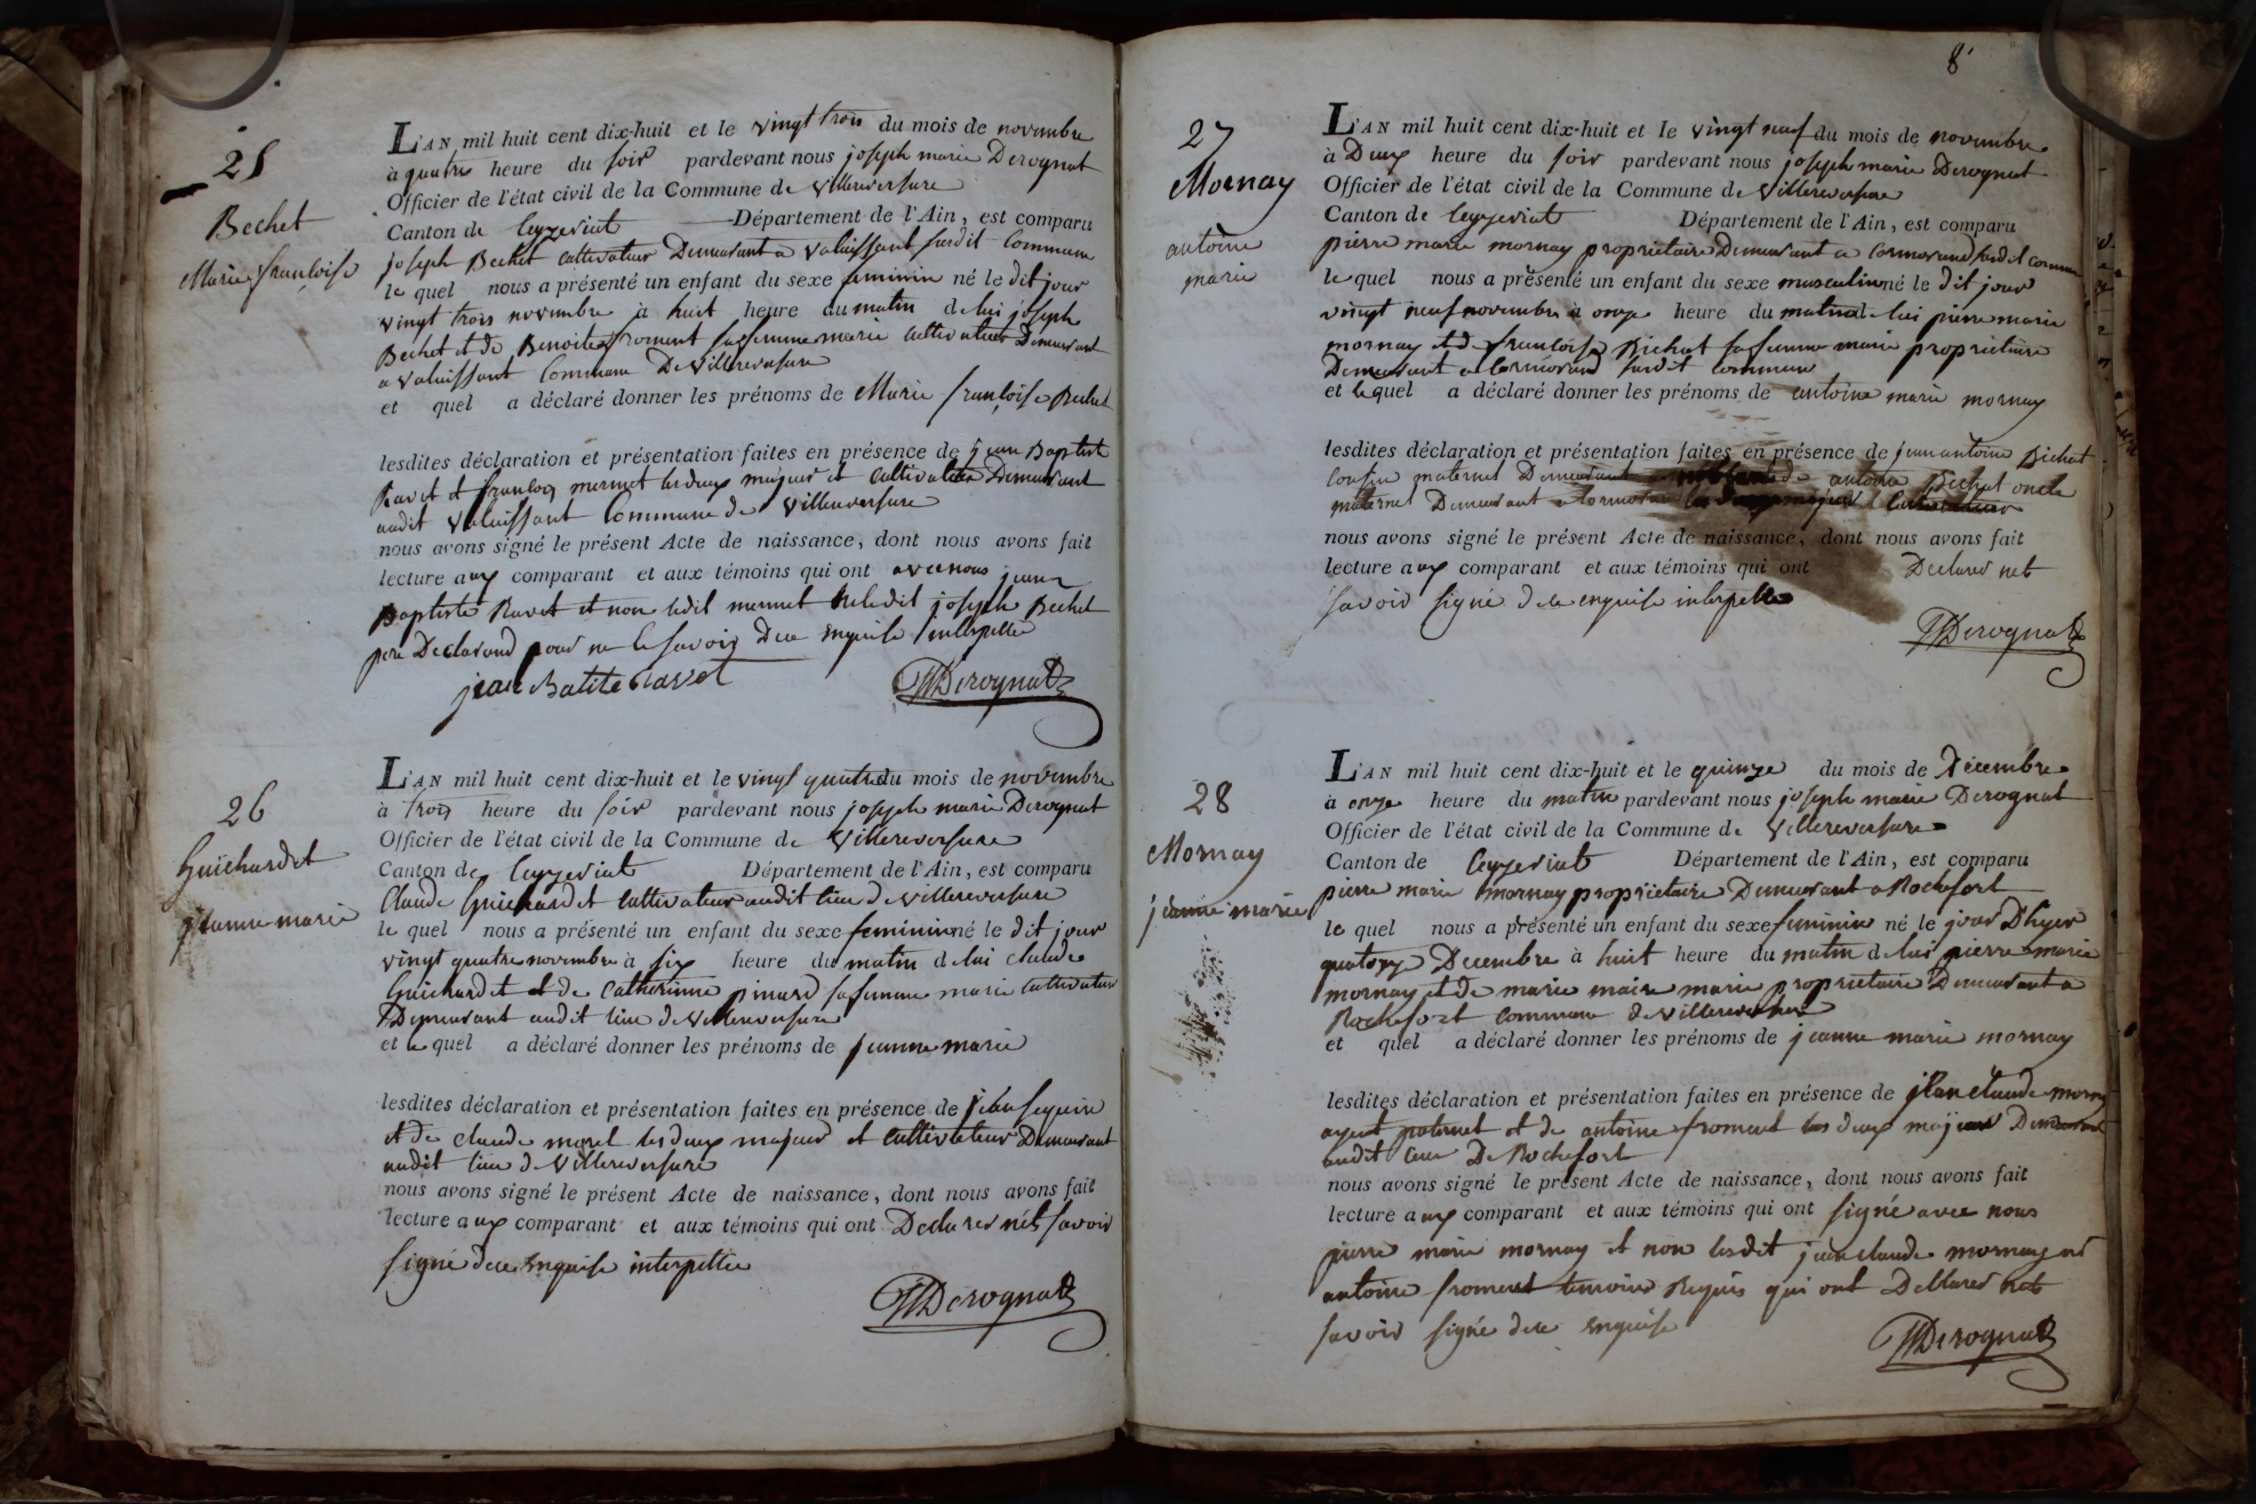 25
Bechet
Marie françoise
L'AN mil huit cent dix-huit et le vingt trois du mois de novembre
à quatre heure du soir pardevant nous joseph marie Derognat
Officier de l'état civil de la Commune de villereversure
Canton de Ceyzeriat Département de l'Ain, est comparu
joseph Bechet cultivateur Demeurant a valuissant susdit Commune
le quel nous a présenté un enfant du sexe feminin né le dit jour
vingt trois novembre à huit heure du matin de lui joseph
Bechet et de Benoite froment sa femme marie cultivateur Demeurant
a valuissant Commune De villereversure
et quel a déclaré donner les prénoms de Marie françoise Bechet
lesdites déclaration et présentation faites en présence de jean Baptiste
Ravet et françois mermet les deux majeur et cultivateur Demeurant
audit valuissant Commune de villereversure
nous avons signé le présent Acte de naissance, dont nous avons fait
lecture aux comparant et aux témoins qui ont avec nous jean
Baptiste Ravet et non ledit mermet ledit joseph Bechet
pere Declarand pour ne le savoir De ce enquise interpellee
jean Batite Ravet JMDerognat
26
Guichardet
jeanne marie
L'AN mil huit cent dix-huit et le vingt quatre du mois de novembre
à trois heure du soir pardevant nous joseph marie Derognat
Officier de l'état civil de la Commune de villereversure
Canton de Ceyzeriat Département de l'Ain, est comparu
Claude Guichardet cultivateur audit lieu de villereversure
le quel nous a présenté un enfant du sexe feminin né le dit jour
vingt quatre novembre à six heure du matin de lui claude
Guichardet et de Catherinne pinard sa femme marie cultivateur
Demeurant audit lieu de villereversure
et le quel a déclaré donner les prénoms de jeanne marie
lesdites déclaration et présentation faites en présence de jean seguin
et de claude morel les deux majeur et cultivateur Demeurant
audit lieu de villereversure
nous avons signé le présent Acte de naissance, dont nous avons fait
lecture aux comparant et aux témoins qui ont Declarer net savoir
signé de ce enquise interpellee
JMDerognat
8
27
Mornay
antoine
marie
L'AN mil huit cent dix-huit et le vingt neuf du mois de novembre
à Deux heure du soir pardevant nous joseph marie Derognat
Officier de l'état civil de la Commune de villereversure
Canton de Ceyzeriat Département de l'Ain, est comparu
pierre marie mornay proprietaire Demeurant a Cormorand susdit commun
le quel nous a présenté un enfant du sexe musculin né le dit jour
vingt neuf novembre à onze heure du matin de lui pierre marie
mornay et de françoise Bichat sa femme marie proprietaire
Demeurant a Cormorand susdit commune
et le quel a déclaré donner les prénoms de antoine marie mornay
lesdites déclaration et présentation faites en présence de jean antoine Bichat
Cousin maternel Demeurant de antoine Bechat oncle
maternel Demeurant a Cormorand les deux majeur Cultivateur
nous avons signé le présent Acte de naissance, dont nous avons fait
lecture aux comparant et aux témoins qui ont Declarer net
savoir signé de ce enquise interpellee
JMDerognat
28
Mornay
jeanne marie
L'AN mil huit cent dix-huit et le quinze du mois de Decembre
à onze heure du matin pardevant nous joseph marie Derognat
Officier de l'état civil de la Commune de villereversure
Canton de Ceyzeriat Département de l'Ain, est comparu
pierre marie mornay proprietaire Demeurant a Rochefort
le quel nous a présenté un enfant du sexe feminin né le jour D'hyer
quatorze Decembre à huit heure du matin de lui pierre marie
mornay et de marie maire marie proprietaire Demeurant a
Rochefort commune de villereversure
et quel a déclaré donner les prénoms de jeanne marie mornay
lesdites déclaration et présentation faites en présence de jean claude morny
ayeut paternel et de antoine froment les deux majeur Demeurant
audit lieu De Rochefort
nous avons signé le présent Acte de naissance, dont nous avons fait
lecture aux comparant et aux témoins qui ont signé avec nous
pierre marie mornay et non lesdit jean claude mornay né
antoine froment temoins Requis qui ont Declarer net
savoir signé de ce enquise
JMDerognat